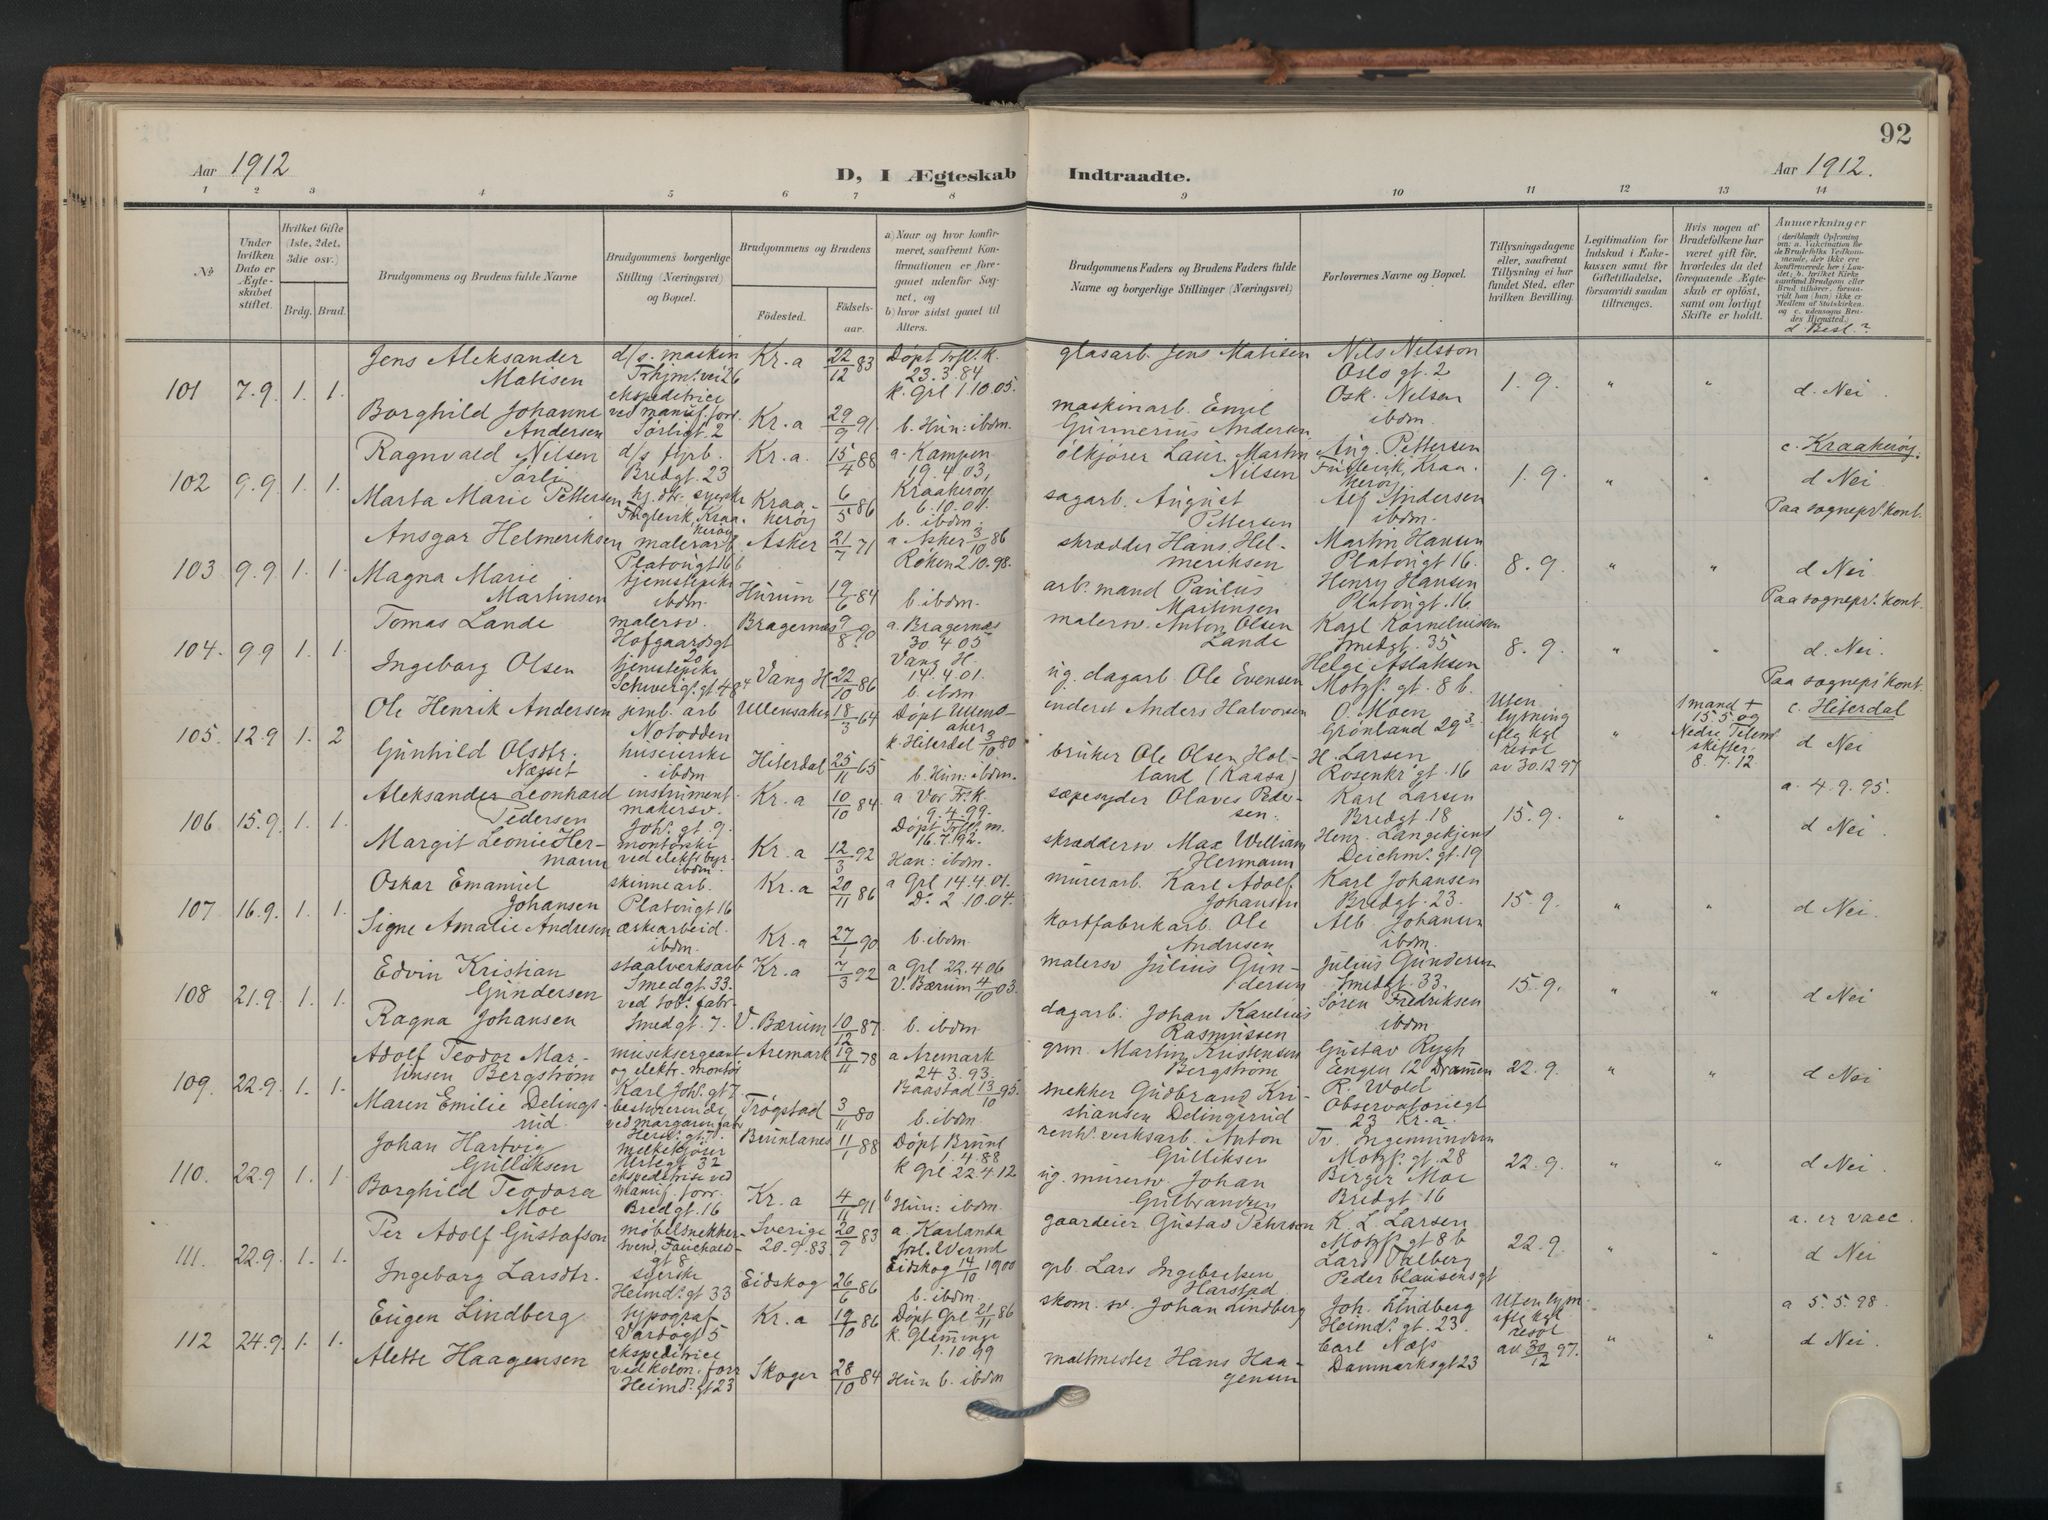 92
Aar 1912
D, I Ægteskab Indtraadte.
Aar 1912.
1 2 3 4 5 6 7 8 9 10 11 12 13 14
No
Under hvilken Dato er Ægteskabet stiftet.
Hvilket Gifte (1ste, 2det, 3die osv.)
Brdg. Brud.
Brudgommens og Brudens fulde Navne
Brudgommens borgerlige Stilling (Næringsvei) og Bopæl.
Brudgommens og Brudens
Födested. Födselsaar.
a) Naar og hvor konfirmeret, saafremt Konfirmationen er foregaaet udenfor Sognet, og
b) hvor sidst gaaet til Alters.
Brudgommens Faders og Brudens Faders fulde Navne og borgerlige Stillinger (Næringsvei)
Forlovernes Navne og Bopæl.
Tillysningsdagene eller, saafremt Tillysning ei har fundet Sted, efter hvilken Bevilling.
Legitimation for Indskud i Enkekassen samt for Giftetilladelse, forsaavidt saadan tiltrænges.
Hvis nogen af Brudefolkene har været gift för, hvorledes da det foregaaende Ægteskab er oplöst, samt om lovligt Skifte er holdt.
Anmærkninger
d Best.?
101 7.9. 1. 1.
Jens Aleksander Matisen
d/s. maskin Trhjm. vei 26
Kr.a 22/12 83
Døpt Trfl. k. 23.3.84
k. Grl 1.10.05.
glasarb. Jens Matisen
Nils Nilsson Oslo gt. 2
1.9. " " d. Nei.
Borghild Johanne Andersen
ekspeditrice ved manuf. forr. Sørligt. 2
Kr.a 29/9 91
b. Hun: ibdm.
maskinarb. Emil Gunnerius Andersen
Osk. Nilsen ibdm.
102 9.9. 1. 1.
Ragnvald Nilsen Sørli
d/s fyrb. Bredgt. 23
Kr.a. 15/4 88
a. Kampen 19.4.03,
ølkjører Laur. Martin Nilsen
Aug. Pettersen Fuglevik Kraakerøy
1.9. " "
c. Kraakerøy.
d Nei.
Paa sognepr. kont.
Marta Marie Pettersen
hj. dtr. syerske Fuglevik, Kraakerøy
Kraakerøy 6/5 86
Kraakerøy 6.10.01.
b. ibdm.
sagarb. August Pettersen
Alf Andersen ibdm.
103 9.9. 1. 1.
Ansgar Helmeriksen
malerarb. Platougt 16
Asker 21/7 71
a Asker 3/10 86
skrædder Hans Helmeriksen
Martin Hansen Platougt 16.
8.9. " " d Nei.
Paa sognepr. kont.
Magna Marie Martinsen
tjenestepike ibdm.
Hurum 19/6 84
Røken 2.10.98.
b. ibdm.
arb. mand Paulus Martinsen
Henry Hansen Platougt. 16
104. 9.9 1. 1.
Tomas Lande
malersv. Hofgaardsgt 20
Bragernæs 9/8 90
a. Bragernæs 30.4.05
malersv. Anton Olsen Lande
Karl Kornelinssen Smedgt. 35
8.9. " " d. Nei.
Paa sognepr. kont.
Ingeborg Olsen
tjenestepike Schweigs. gt 48
Vang H 22/10 86
Vang H. 14.4.01.
b. ibdm.
ug. dagarb. Ole Evensen
Helge Aslaksen Motzf. gt. 8 b.
105. 12.9 1. 2
Ole Henrik Andersen
jernb. arb Notodden
Ullensaker 18/3 64
Døpt Ullensaker
k. Hiterdal 3/10 80
inderst Anders Halvorsen
O. Moen Grønland 29
Uten lysning eftr kgl resol av 30.12.97
1 mand + 15.5.09 Nedre Telem skifter. 8.7.12.
c. Hiterdal
d Nei
Gunhild Olsdtr. Næsset
huseierske ibdm
Hiterdal 25/11 65
b. Hun: ibdm.
bruker Ole Olsen Holland (Kaasa)
H. Larsen Rosenkr. gt. 16
106 15.9. 1. 1.
Aleksander Leonhard Pedersen
instrumentmakersv. Joh. gt. 9.
Kr.a 10/10 84
a Vor Fr. k. 9.4.99.
sæpesyder Olaves Pedersen.
Karl Larsen Bredgt. 18
15.9. " "
a. 4.9.95.
d Nei
Margit Leonie Hermann
ved elektr. byr. ibdm
Kr.a 12/3 92
16.7.92.
Hun: ibdm.
skræddersv Max William Hermann
Henr. Langekjend Deichm. gt. 19
107 16.9. 1. 1.
Oskar Emanuel Johansen
skinnearb. Platougt 16
Kr.a 20/11 86
a Grl 14.4.01.
D. 2.10.04.
murerarb. Karl Adolf Johansen
Karl Johansen Bredgt. 23.
15.9. " " d Nei.
Signe Amalie Andresen
æskearbeid. ibdm.
Kr.a 27/1 90
b. ibdm.
kortfabrikarb. Ole Andresen
Alb. Johansen ibdm.
108 21.9. 1. 1.
Edvin Kristian Gundersen
staalverksarb Smedgt. 33.
Kr.a 7/3 92
a Grl 22.4.06
malersv Julius Gundersen
Julius Gundersen Smedgt. 33.
15.9. " " d Nei
Ragna Johansen
ved tob. fabr. Smedgt. 7.
V. Bærum 10/12 87.
V. Bærum 4/10 03.
b. ibdm.
dagarb. Johan Karelius Rasmussen
Søren Fredriksen ibdm
109. 22.9. 1. 1.
Adolf Teodor Martinsen Bergstrøm
musiksergeant og elektr. montør Karl Joh. gt 7
Aremark 19/11 78
a Aremark 24.3.93.
grm. Martin Kristensen Bergstrøm
Gustav Rygh Engen 12 Drammen
22.9. " " d Nei
Maren Emilie Delingsrud
bestyrerinde ved margarinfabr
Trøgstad 3/11 80
Baastad 13/10 95.
b. ibdm.
snekker Gudbrand Kristiansen Delingsrud
R. Wold Observatoriegt 23 Kr.a.
110. 22.9 1. 1.
Johan Hartvig Gulliksen
melkekjører Urtegt 32
Brunlanes 11/1 88
Døpt Brunl 1.4.88
k Grl 22.4.12
renh. verksarb. Anton Gulliksen
Tv. Ingemundsen Motzf. gt. 28
22.9. " " d Nei
Borghild Teodora Moe
ekspeditrise ved manuf. forr. Bredgt. 16
Kr.a 4/11 91
b Hun: ibdm
ug. murersv. Johan Gulbrandsen
Birger Moe Bredgt 16
111. 22.9. 1. 1.
Per Adolf Gustafson
møbelsnekkersvend, Fauchaldsgt 8
Sverige 20.9.83. 20/9 83
a. Karlanda frl. Werml
gaardeier Gustav Pehrson
K. L. Larsen Motzf. gt 8 b
22.9. " "
a. er vacc.
d Nei
Ingeborg Larsdtr.
syerske Heimd. gt 33
Eidskog 26/6 86
Eidskog 14/10 1900
b. ibdm.
gb. Lars Ingebretsen Harstad
Lars Talberg Peder Clausensgt
112 24.9. 1. 1.
Eugen Lindberg
typograf Vardøgt 5
Kr.a 19/10 86
Døpt Grl 21/11 86
k. Glemminge 1.10.99
skom. sv Johan Lindberg
Joh. Lindberg Heimd. gt. 23.
Uten lysn. eftr kgl resol av 30/12 97.
" "
a 5.5.98.
d Nei.
Alette Haagensen
ekspeditrice ved kolon. forr Heimd. gt 23
Skoger 28/10 84
Hun b. ibdm
maltmester Hans Haagensen
Carl Næss Danmarksgt 23